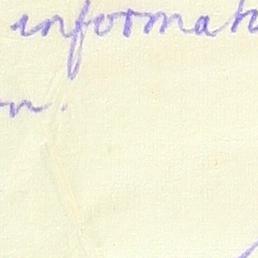 informat
n.